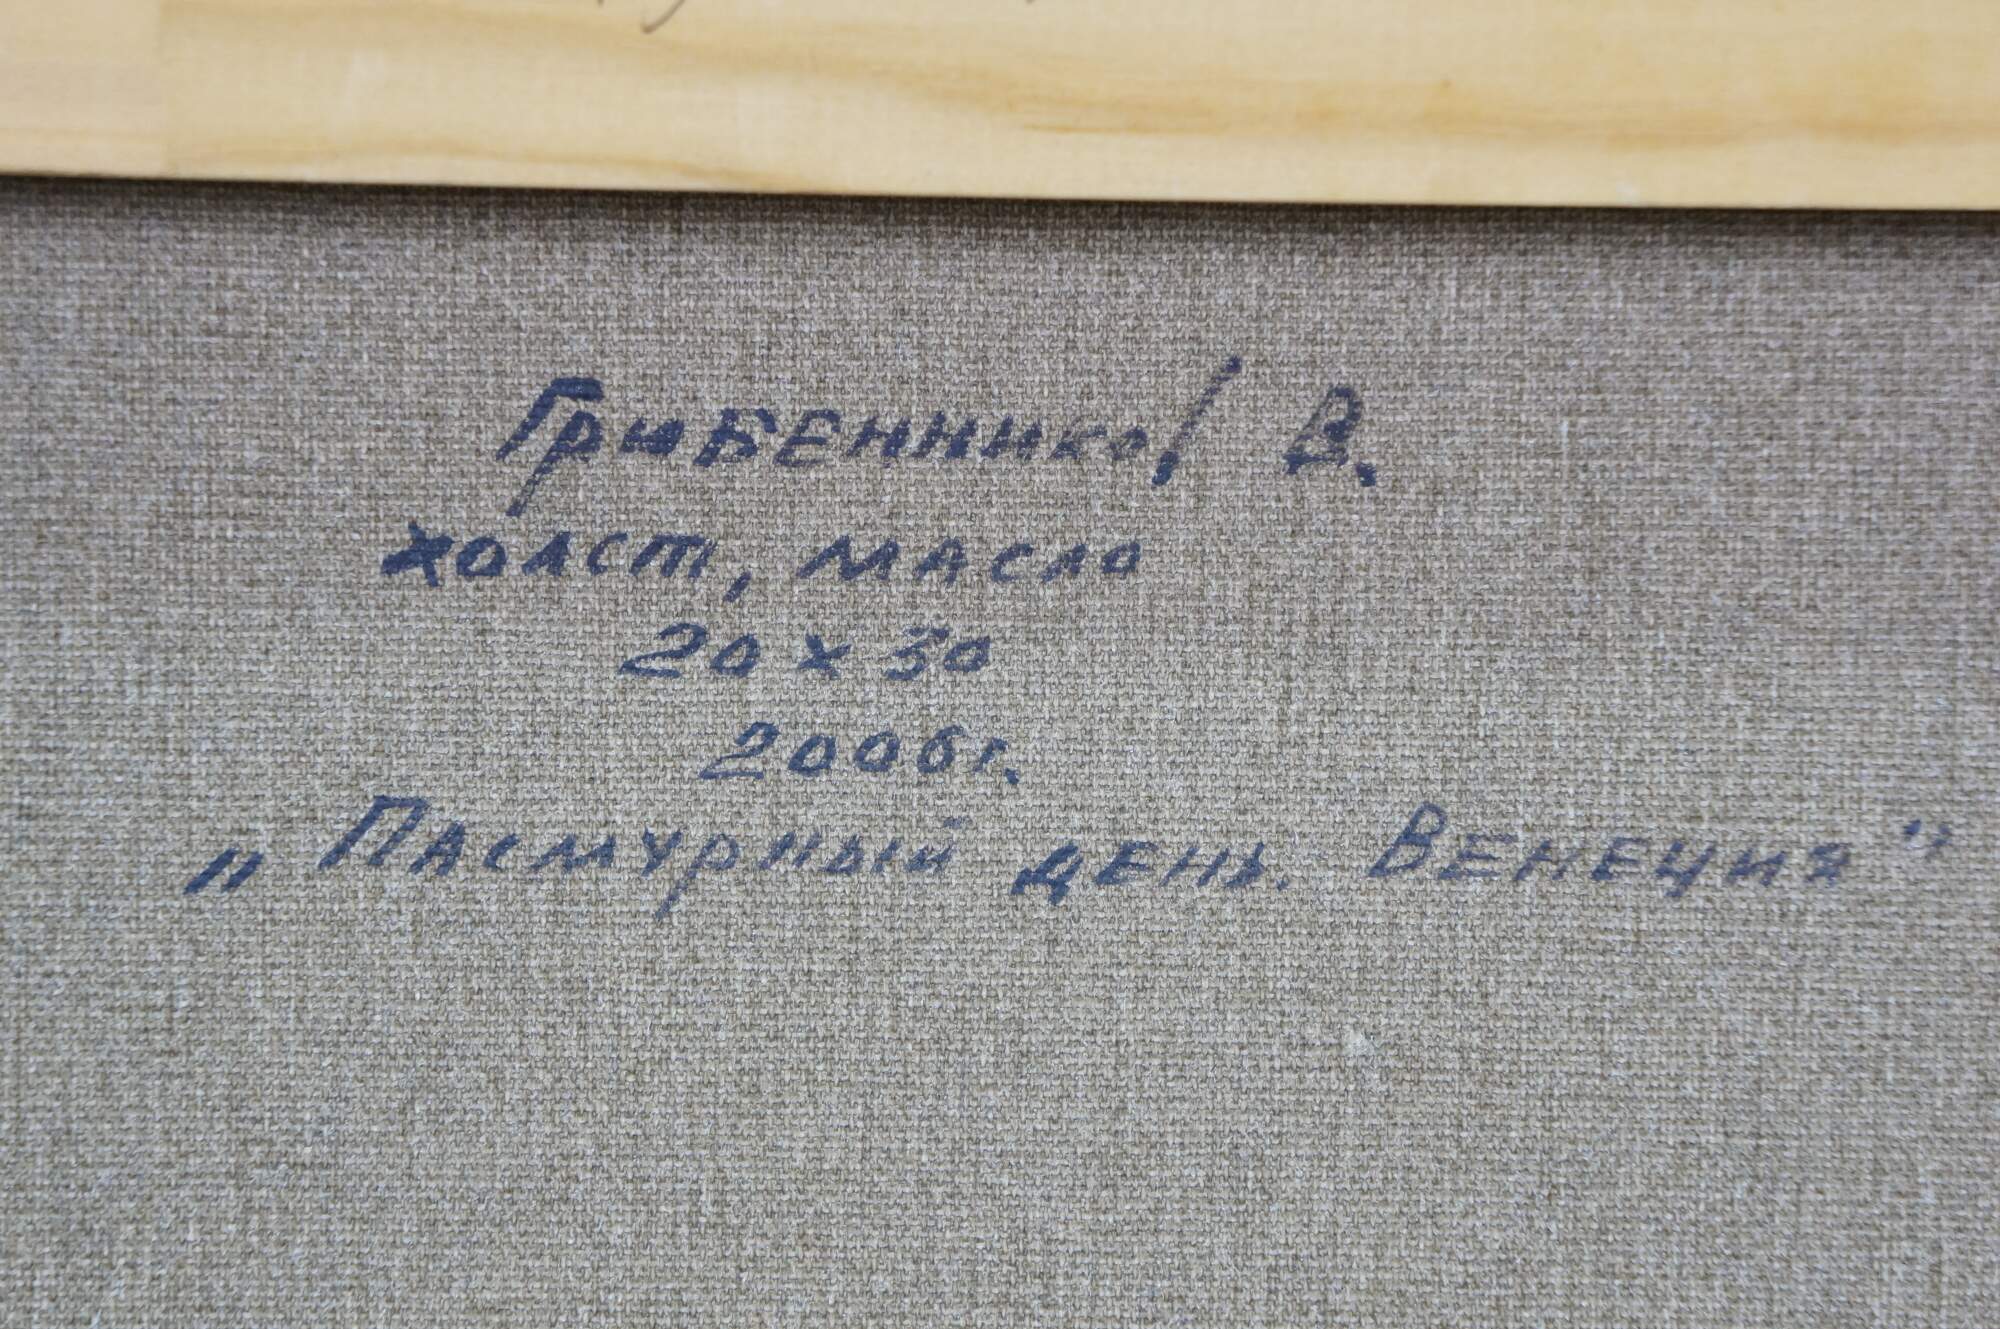 Грибенников В.
холст, масло
20 x 30
2006г.
„Пасмурный день. Венеция"